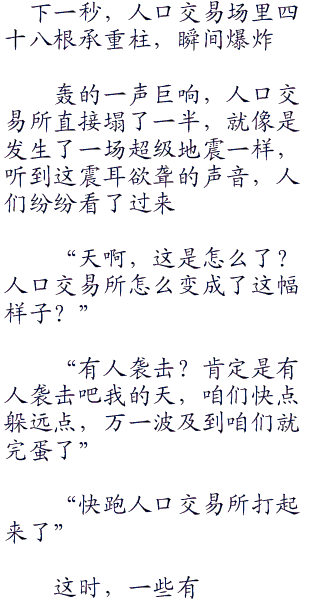 下一秒，人口交易场里四
十八根承重柱，瞬间爆炸
轰的一声巨响，人口交
易所直接塌了一半，就像是
发生了一场超级地震一样，
听到这震耳欲聋的声音，人
们纷纷看了过来
“天啊，这是怎么了？
人口交易所怎么变成了这幅
样子？”
“有人袭击？肯定是有
人袭击吧我的天，咱们快点
躲远点，万一波及到咱们就
完蛋了”
“快跑人口交易所打起
来了”
这时，一些有